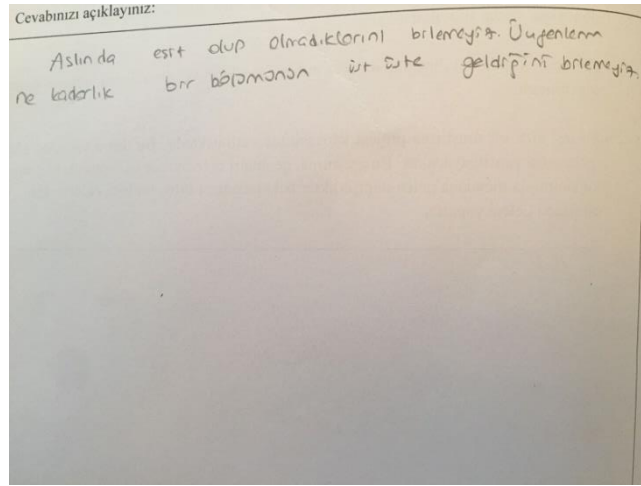 Cevabınızı açıklayınız:
Aslında eşit olup olmadıklarını bilemeyiz. Üçgenlerin
ne kadarlık bir bölümünün üst üste geldiğini bilemeyiz.